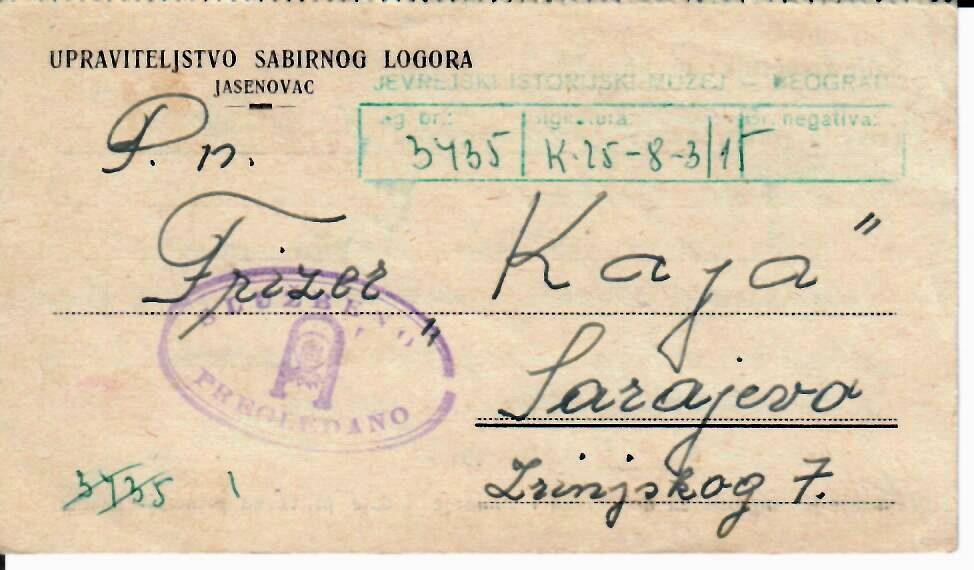 UPRAVITELJSTVO SABIRNOG LOGORA
JASENOVAC
JEVREJSKI ISTORIJSKI MUZEJ – BEOGRAD
eg. br.: signatura: Br. negativa:
3435 K-25-8-3/1
P. n.
Frizer „ Kaja "
SLUŽBENO
PREGLEDANO
Sarajevo
Zrinjskog 7.
3435 1